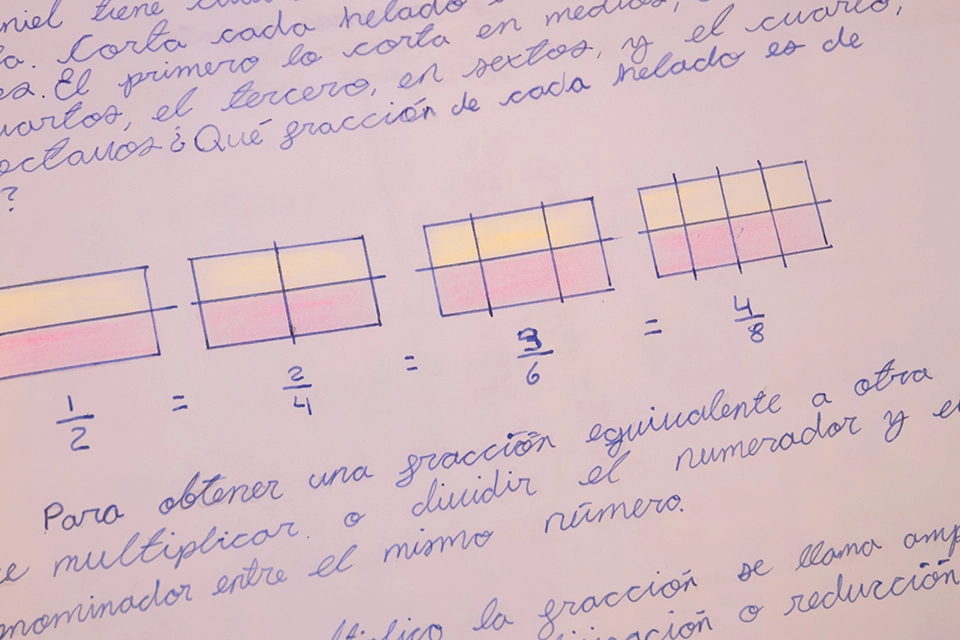 niel tiene
a. Corta cada helado
es. El primero lo corta en medios,
uartos, el tercero, en sextos, y el cuarto,
octavos ¿Qué fracción de cada helado es de
?
1/2 = 2/4 = 3/6 = 4/8
Para obtener una fracción equivalente a otra
e multiplicar o dividir el numerador y e
nominador entre el mismo número.
la fracción se llama amp
o reducción